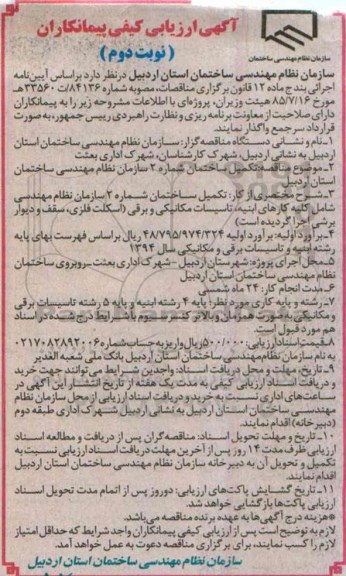 آگهی ارزیابی کیفی پیمانکاران
(نوبت دوم)
سازمان نظام مهندسی ساختمان
سازمان نظام مهندسی ساختمان استان اردبیل درنظر دارد براساس آیین‌نامه
اجرائی بند ج ماده ۱۲ قانون برگزاری مناقصات، مصوبه شماره ۸۴۱۳۶/ت ۳۳۵۶۰هـ
مورخ ۸۵/۷/۱۶ هیئت وزیران، پروژه‌ای با اطلاعات مشروحه زیر را به پیمانکاران
دارای صلاحیت از معاونت برنامه ریزی و نظارت راهبردی رییس جمهور، به صورت
قرارداد سرجمع واگذار نمایند.
۱-نام و نشانی دستگاه مناقصه‌گزار: سازمان نظام مهندسی ساختمان استان
اردبیل به نشانی اردبیل، شهرک کارشناسان، شهرک اداری بعثت
۲-موضوع مناقصه: تکمیل ساختمان شماره ۲ سازمان نظام مهندسی ساختمان
استان اردبیل
۳-شرح مختصری از کار: تکمیل ساختمان شماره ۲ سازمان نظام مهندسی
شامل کلیه کارهای ابنیه، تاسیسات مکانیکی و برقی (اسکلت فلزی، سقف و دیوار
برشی اجرا گردیده است)
۴-برآورد اولیه: برآورد اولیه ۴۸/۷۹۵/۹۷۴/۳۲۴ ریال براساس فهرست بهای پایه
رشته ابنیه و تاسیسات برقی و مکانیکی سال ۱۳۹۴
۵-محل اجرای پروژه: شهرستان اردبیل - شهرک اداری بعثت - روبروی ساختمان
نظام مهندسی ساختمان استان اردبیل
۶-مدت انجام کار: ۲۴ ماه شمسی
۷-رشته و پایه کاری مورد نظر: پایه ۴ رشته ابنیه و پایه ۵ رشته تاسیسات برقی
و مکانیکی به صورت همزمان و بالاتر با شرایط درج شده در اسناد
هم مورد قبول است.
۸-قیمت اسناد ارزیابی: ۵۰۰/۰۰۰ ریال واریز به حساب شماره ۰۲۱۷۰۸۲۸۹۲۰۰۶
به نام سازمان نظام مهندسی ساختمان استان اردبیل بانک ملی شعبه الغدیر
۹-تاریخ، مهلت و محل دریافت اسناد: واجدین شرایط می‌توانند جهت خرید
و دریافت اسناد ارزیابی کیفی به مدت یک هفته از تاریخ انتشار این آگهی در
ساعت‌های اداری نسبت به خرید و دریافت اسناد ارزیابی از محل سازمان نظام
مهندسی ساختمان استان اردبیل به نشانی اردبیل شهرک اداری طبقه دوم
(دبیرخانه) اقدام نمایند.
۱۰-تاریخ و مهلت تحویل اسناد: مناقصه‌گران پس از دریافت و مطالعه اسناد
ارزیابی ظرف مدت ۱۴ روز پس از آخرین مهلت دریافت اسناد ارزیابی نسبت به
تکمیل و تحویل آن به دبیرخانه سازمان نظام مهندسی ساختمان استان اردبیل
اقدام نمایند.
۱۱-تاریخ گشایش پاکت‌های ارزیابی: دو روز پس از اتمام مدت تحویل اسناد
ارزیابی پاکت‌ها بازگشایی خواهد شد.
*هزینه درج آگهی‌ها به عهده برنده مناقصه می‌باشد.
لازم به توضیح است پس از ارزیابی کیفی پیمانکاران واجد شرایط که حداقل امتیاز
لازم را کسب نمایند، برای برگزاری مناقصه دعوت به عمل خواهد آمد.
سازمان نظام مهندسی ساختمان استان اردبیل